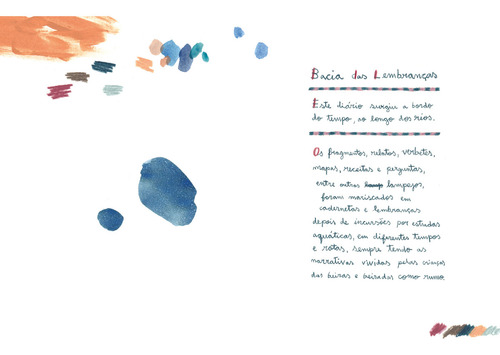 Bacia das Lembranças
Este diário surgiu a bordo
do tempo, ao longo dos rios.
Os fragmentos, relatos, verbetes,
mapas, receitas e perguntas,
entre outros lampejos,
foram mariscados em
cadernetas e lembranças
depois de incursões por estudas
aquáticas, em diferentes tempos
e rotas, sempre tendo as
narrativas vividas pelas crianças
das beiras e beiradas como rumo.